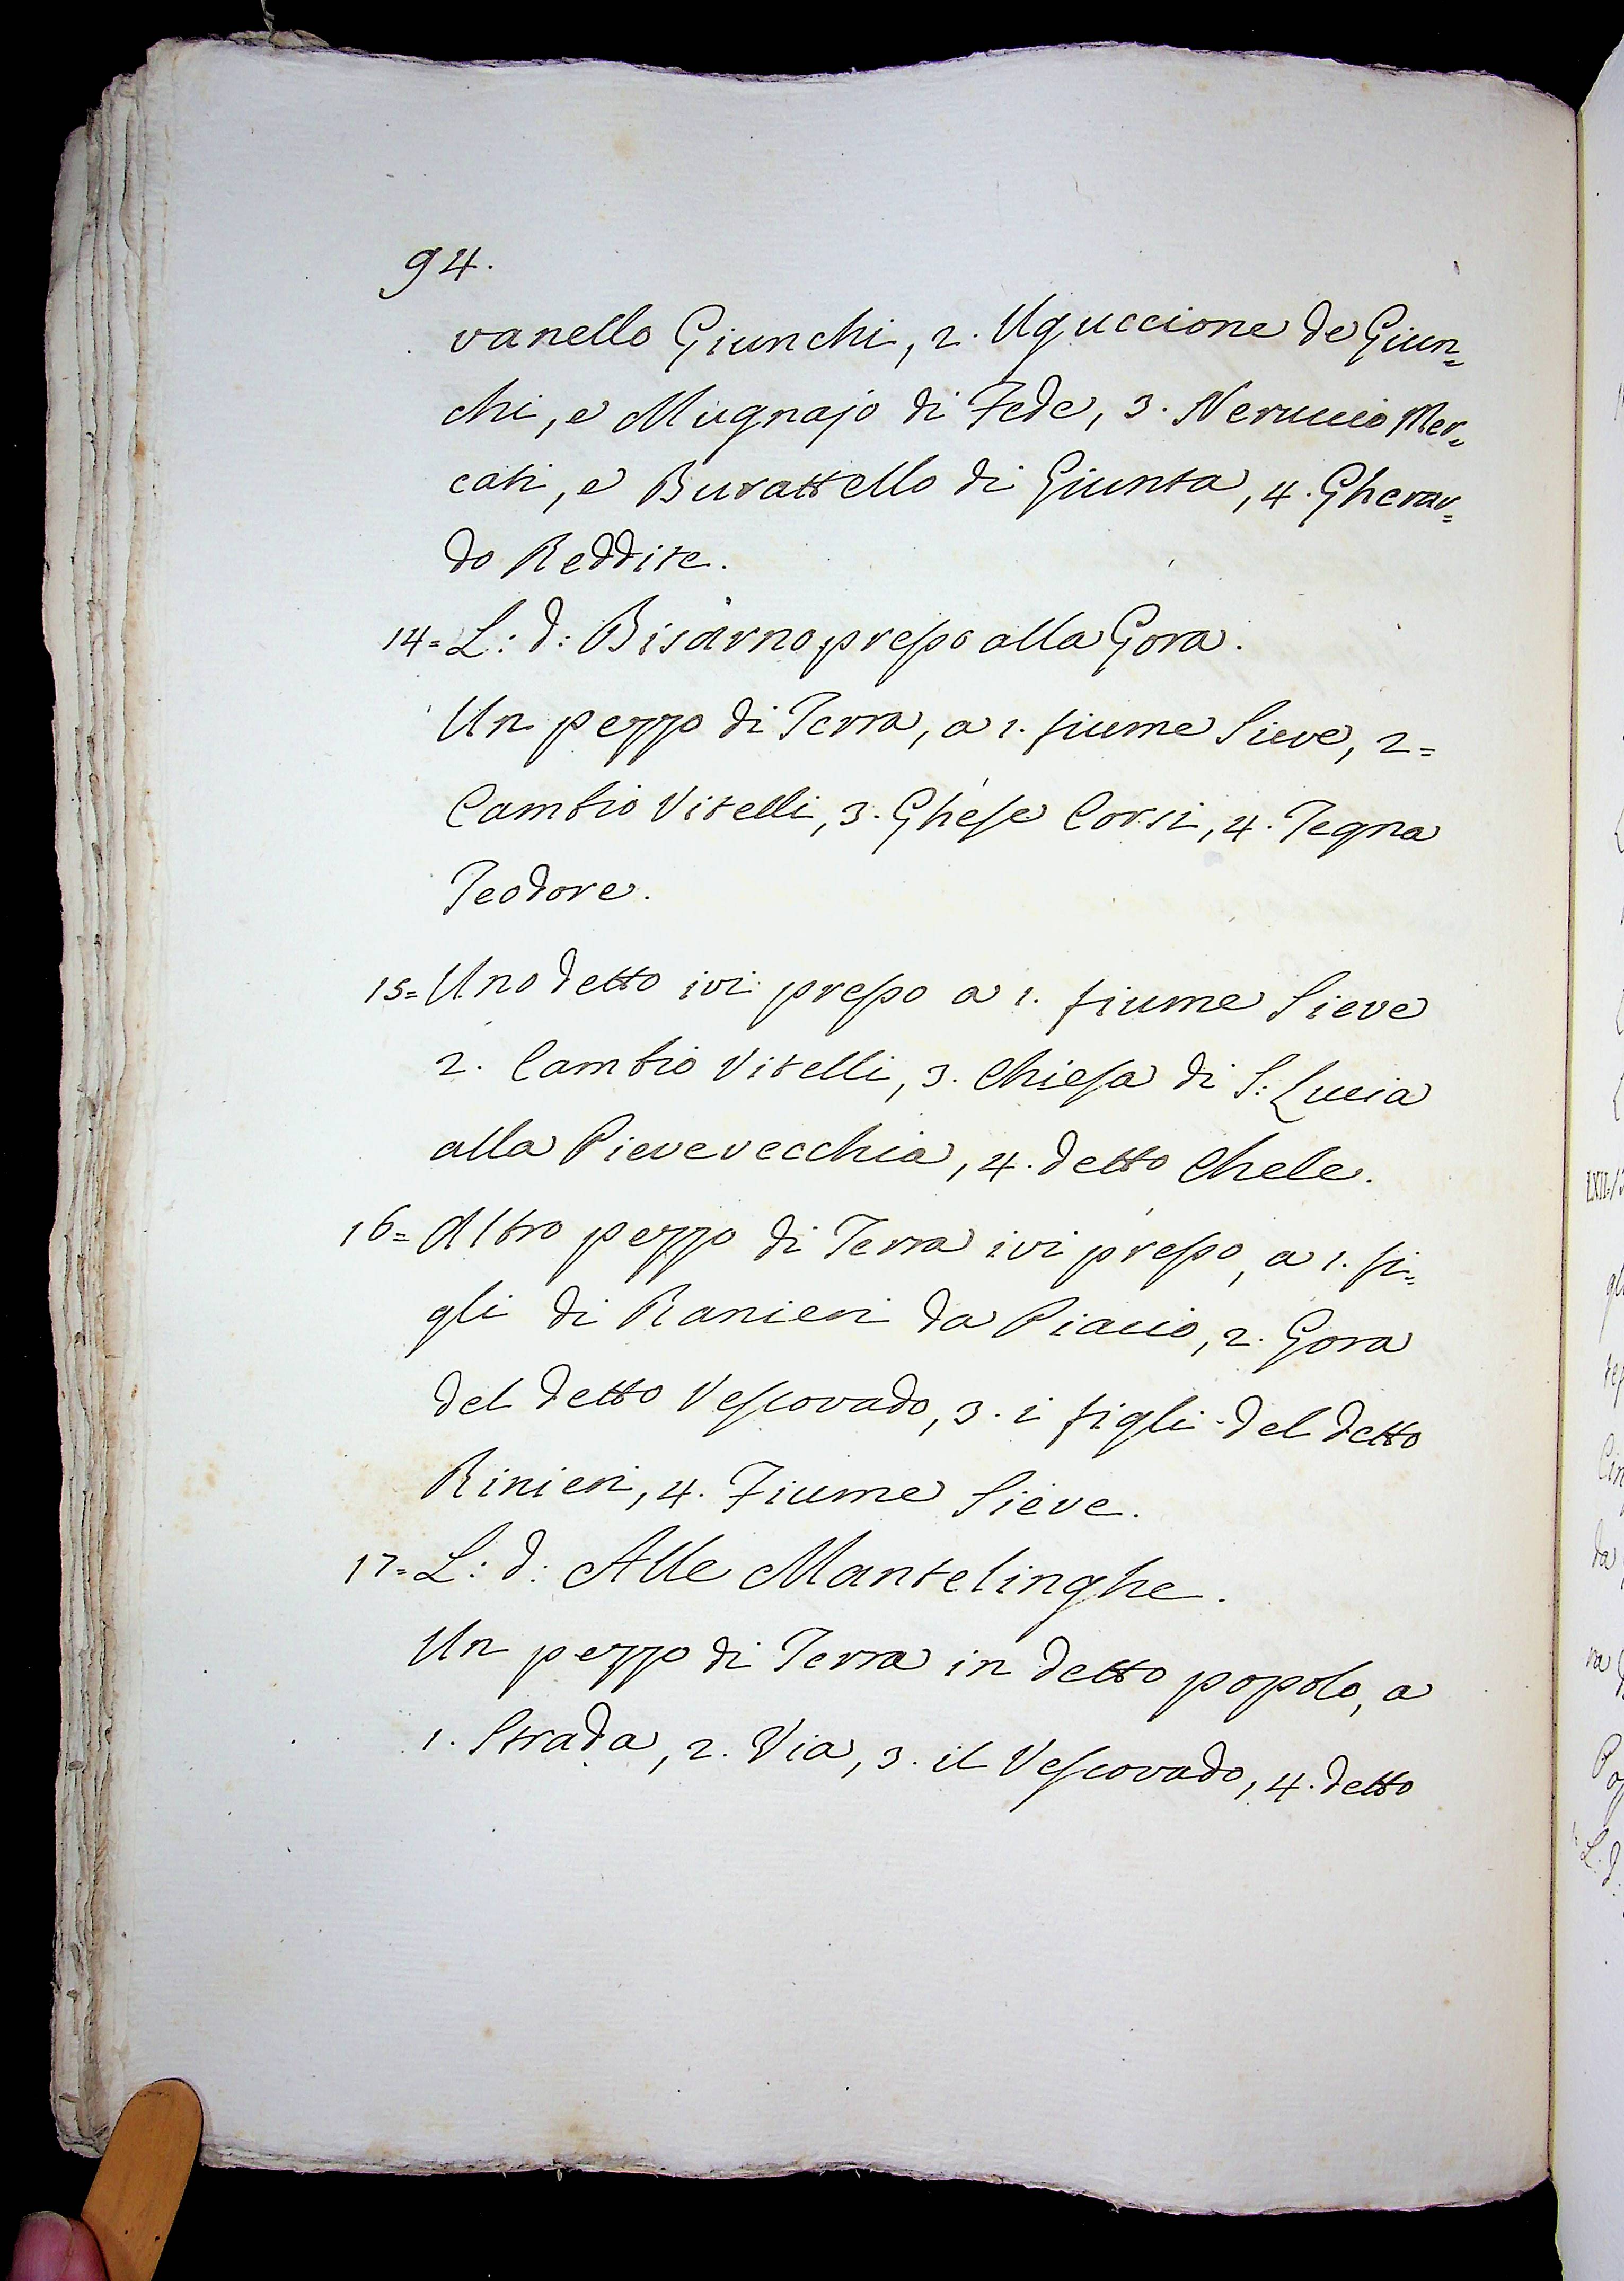 94.
vanello Giunchi, 2. Uguccione de Giun=
chi, e Mugnajo di Fede, 3. Neruccio Mer=
cati, e Burattello di Giunta, 4. Gherar=
do Reddite.
14= L: d: Bisarno presso alla Gora.
Un pezzo di Terra, a 1. fiume Sieve, 2=
Cambio Vitelli, 3. Ghese Corsi, 4. Tegna
Teodore.
15= Uno detto ivi presso a 1. fiume Sieve
2. Cambio Vitelli, 3. Chiesa di S: Lucia
alla Pievevecchia, 4. detto Chele.
16= Altro pezzo di Terra ivi presso, a 1. fi=
gli di Ranieri da Piacio, 2. Gora
del detto Vescovado, 3. i figli del detto
Rinieri, 4. Fiume Sieve.
17= L: d: Alle Mantelinghe.
Un pezzo di Terra in detto popolo, a
1. Strada, 2. Via, 3. il Vescovado, 4. detto